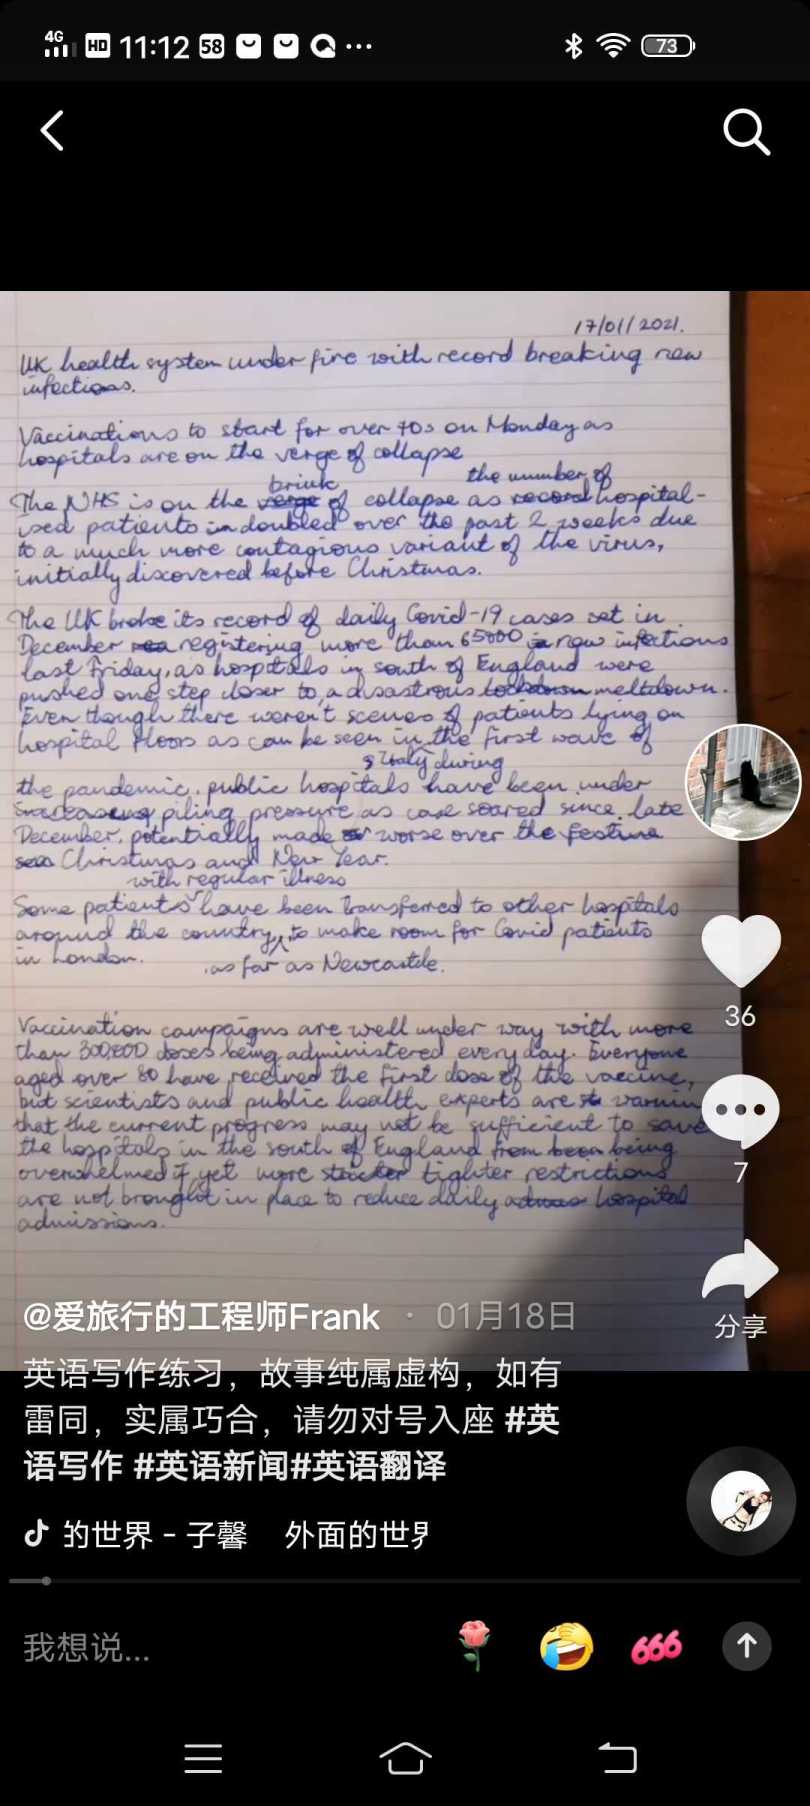 4G HD 11:12 58 73
17/01/2021.
UK health system under fire with record breaking new
infections.
Vaccinations to start for over 70s on Monday as
hospitals are on the verge of collapse
brink the number of
The NHS is on the verge of collapse as record hospital-
ised patients in doubled over the past 2 weeks due
to a much more contagious variant of the virus,
initially discovered before Christmas.
The UK broke its record of daily Covid-19 cases set in
December registering more than 65000 new infections
last Friday, as hospitals in south of England were
pushed one step closer to a disastrous lockdown meltdown.
Even though there weren't scenes of patients lying on
hospital floors as can be seen in the first wave of
Italy during
the pandemic, public hospitals have been under
increasing piling pressure as case soared since late
December, potentially made worse over the festive
Christmas and New Year.
with regular illness
Some patients have been transferred to other hospitals
around the country, to make room for Covid patients
in London.
as far as Newcastle.
Vaccination campaigns are well under way with more
than 300,000 doses being administered every day. Everyone
aged over 80 have received the first dose of the vaccine,
but scientists and public health experts are warnin
that the current progress may not be sufficient to save
the hospitals in the south of England from been being
overwhelmed if yet more stricter tighter restrictions
are not brought in place to reduce daily hospital
admissions.
36
7
分享
@爱旅行的工程师Frank · 01月18日
英语写作练习，故事纯属虚构，如有
雷同，实属巧合，请勿对号入座 #英
语写作 #英语新闻#英语翻译
的世界 - 子馨 外面的世界
我想说...
666